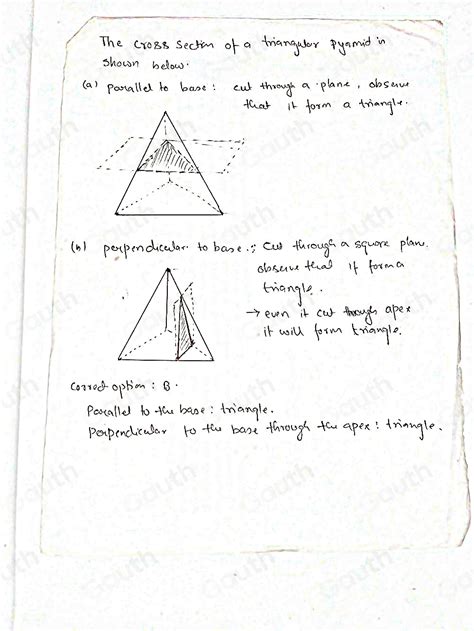 The cross section of a triangular pyamid is
shown below.
(a) parallel to base : cut through a plane, observe
that it form a triangle.
(b) perpendicular to base.; cut through a square plane.
observe that it form a
triangle.
→ even it cut through apex
it will form triangle.
correct option : B.
Parallel to the base : triangle.
Perpendicular to the base through the apex : triangle.
Gauth